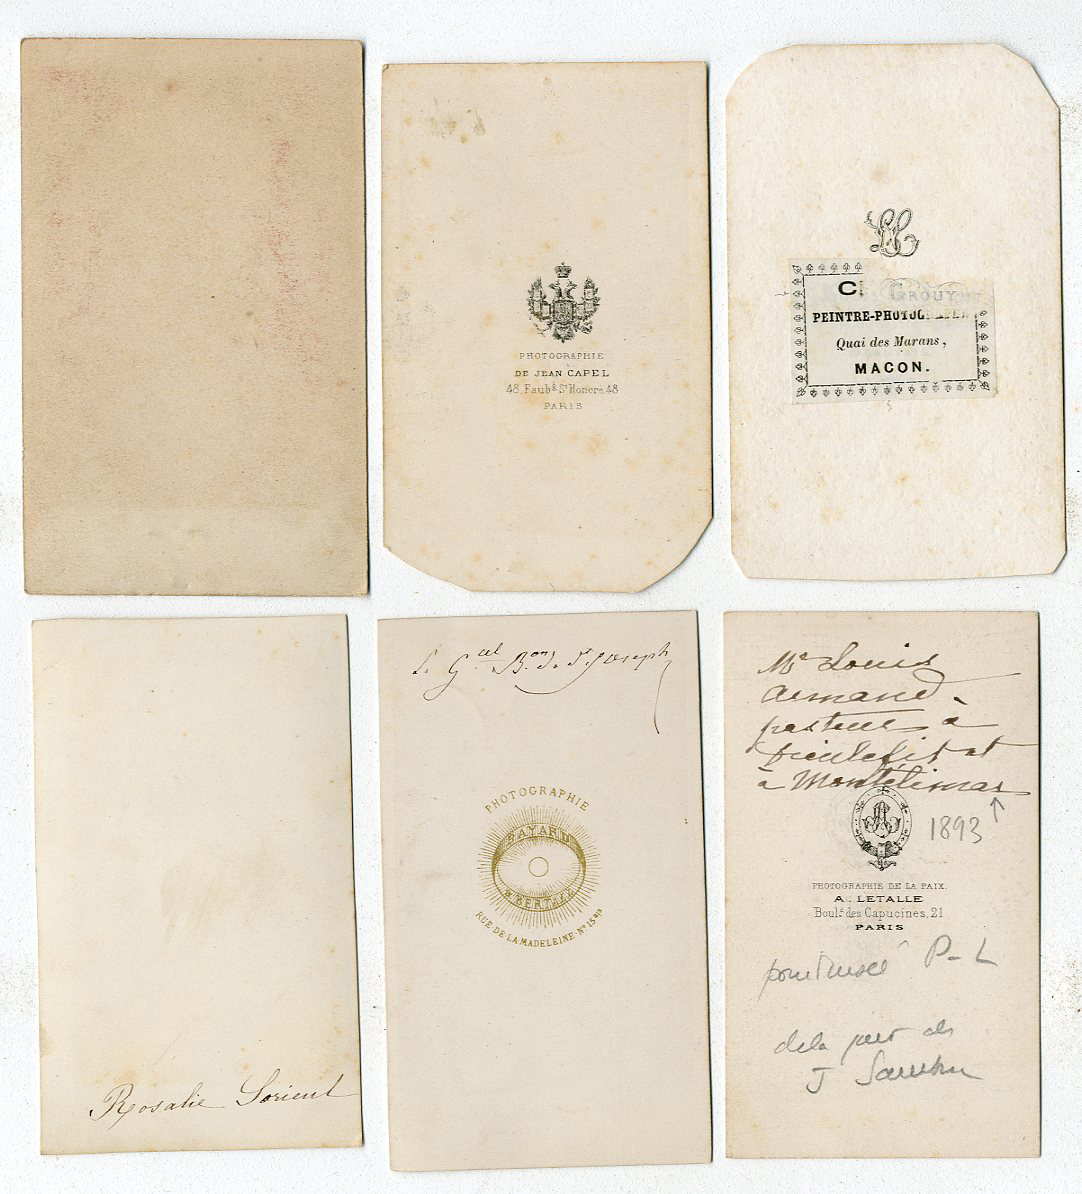 PHOTOGRAPHIE
DE JEAN CAPEL
48, Faubg St Honoré, 48
PARIS
C. GROUY
PEINTRE-PHOTOGRAPHE
Quai des Marans,
MACON.
Rosalie Lorient
Le Gal Bon de St Joseph
PHOTOGRAPHIE
BAYARD
& BERTALL
RUE DE LA MADELEINE. No 15 BIS
Mr Louis
Armand
pasteur à
Dieulefit et
à Montélimar
1893
PHOTOGRAPHIE DE LA PAIX.
A. LETALLE
Bould des Capucines, 21
PARIS
P-L
de la part de
J